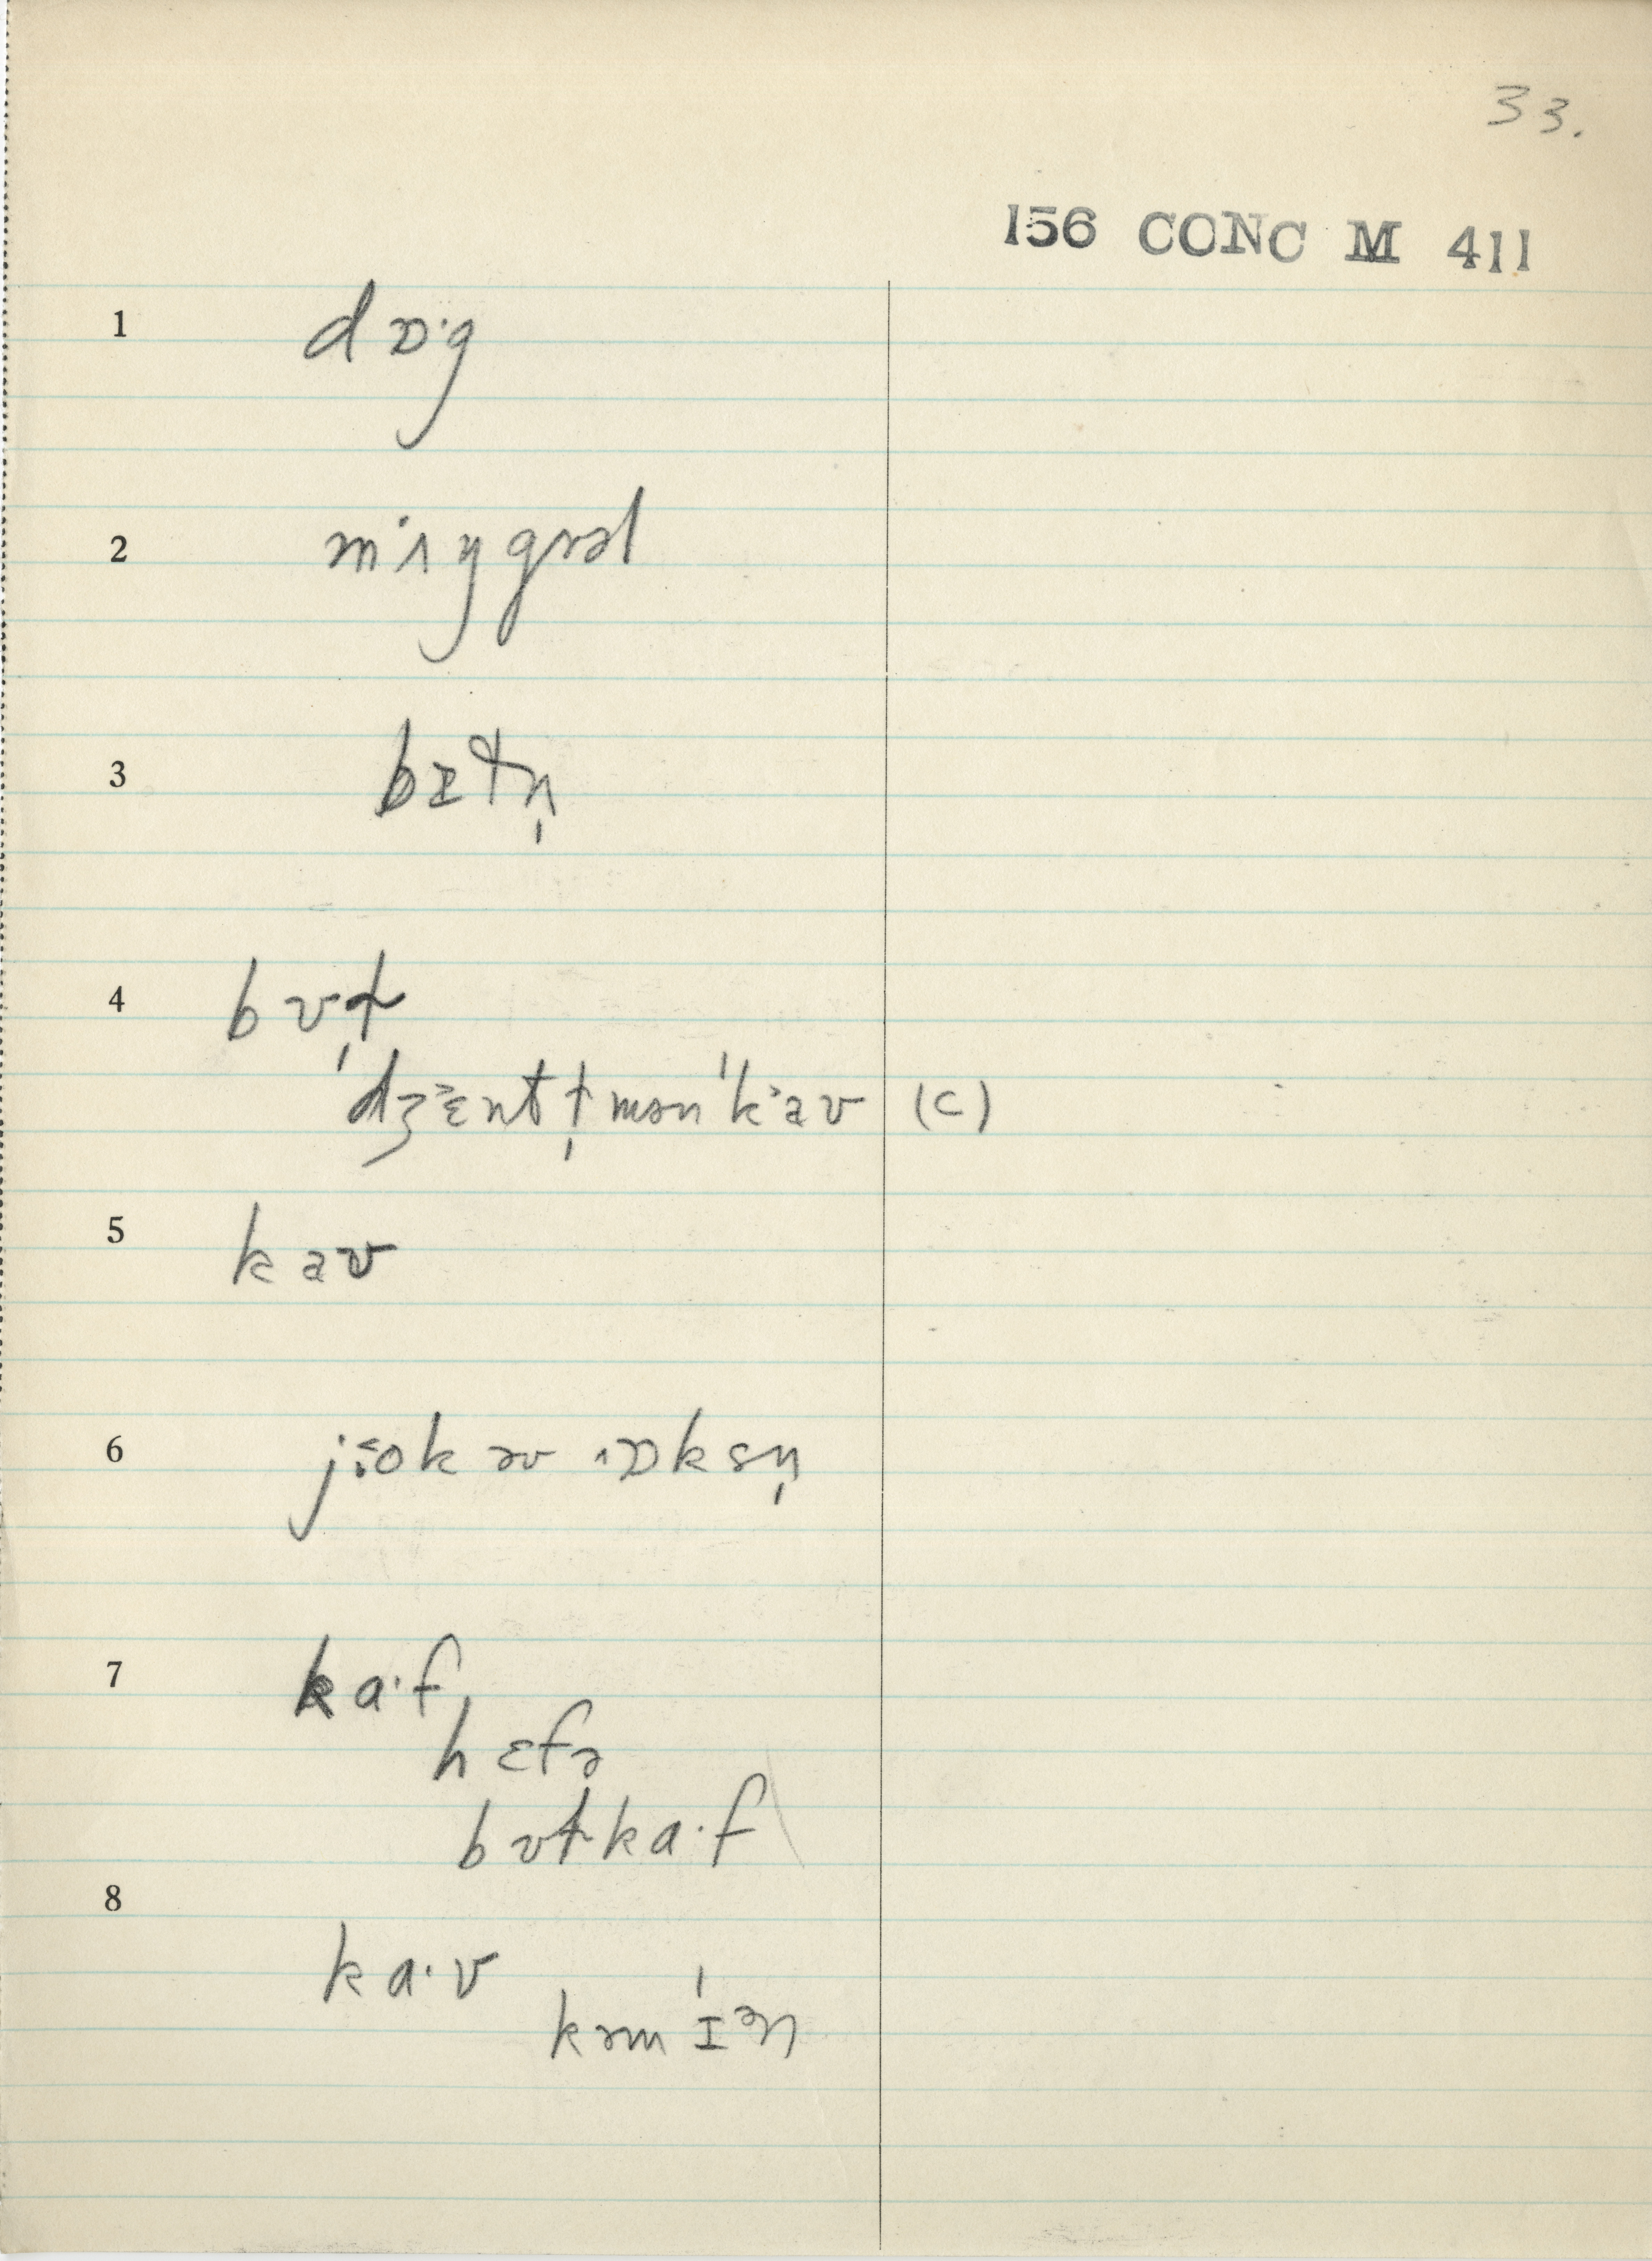 33.
156 CONC M 411
1 dɒ·g
2 mʌŋgrəl
3 bɪtn̩
4 bʊt
ˈdʒɛntt̩mənˈkaʊ (c)
5 kaʊ
6 jok əv ɒksn̩
7 ka·f
hɛfə
bʊtka·f
8
ka·v
kəmˈɪən